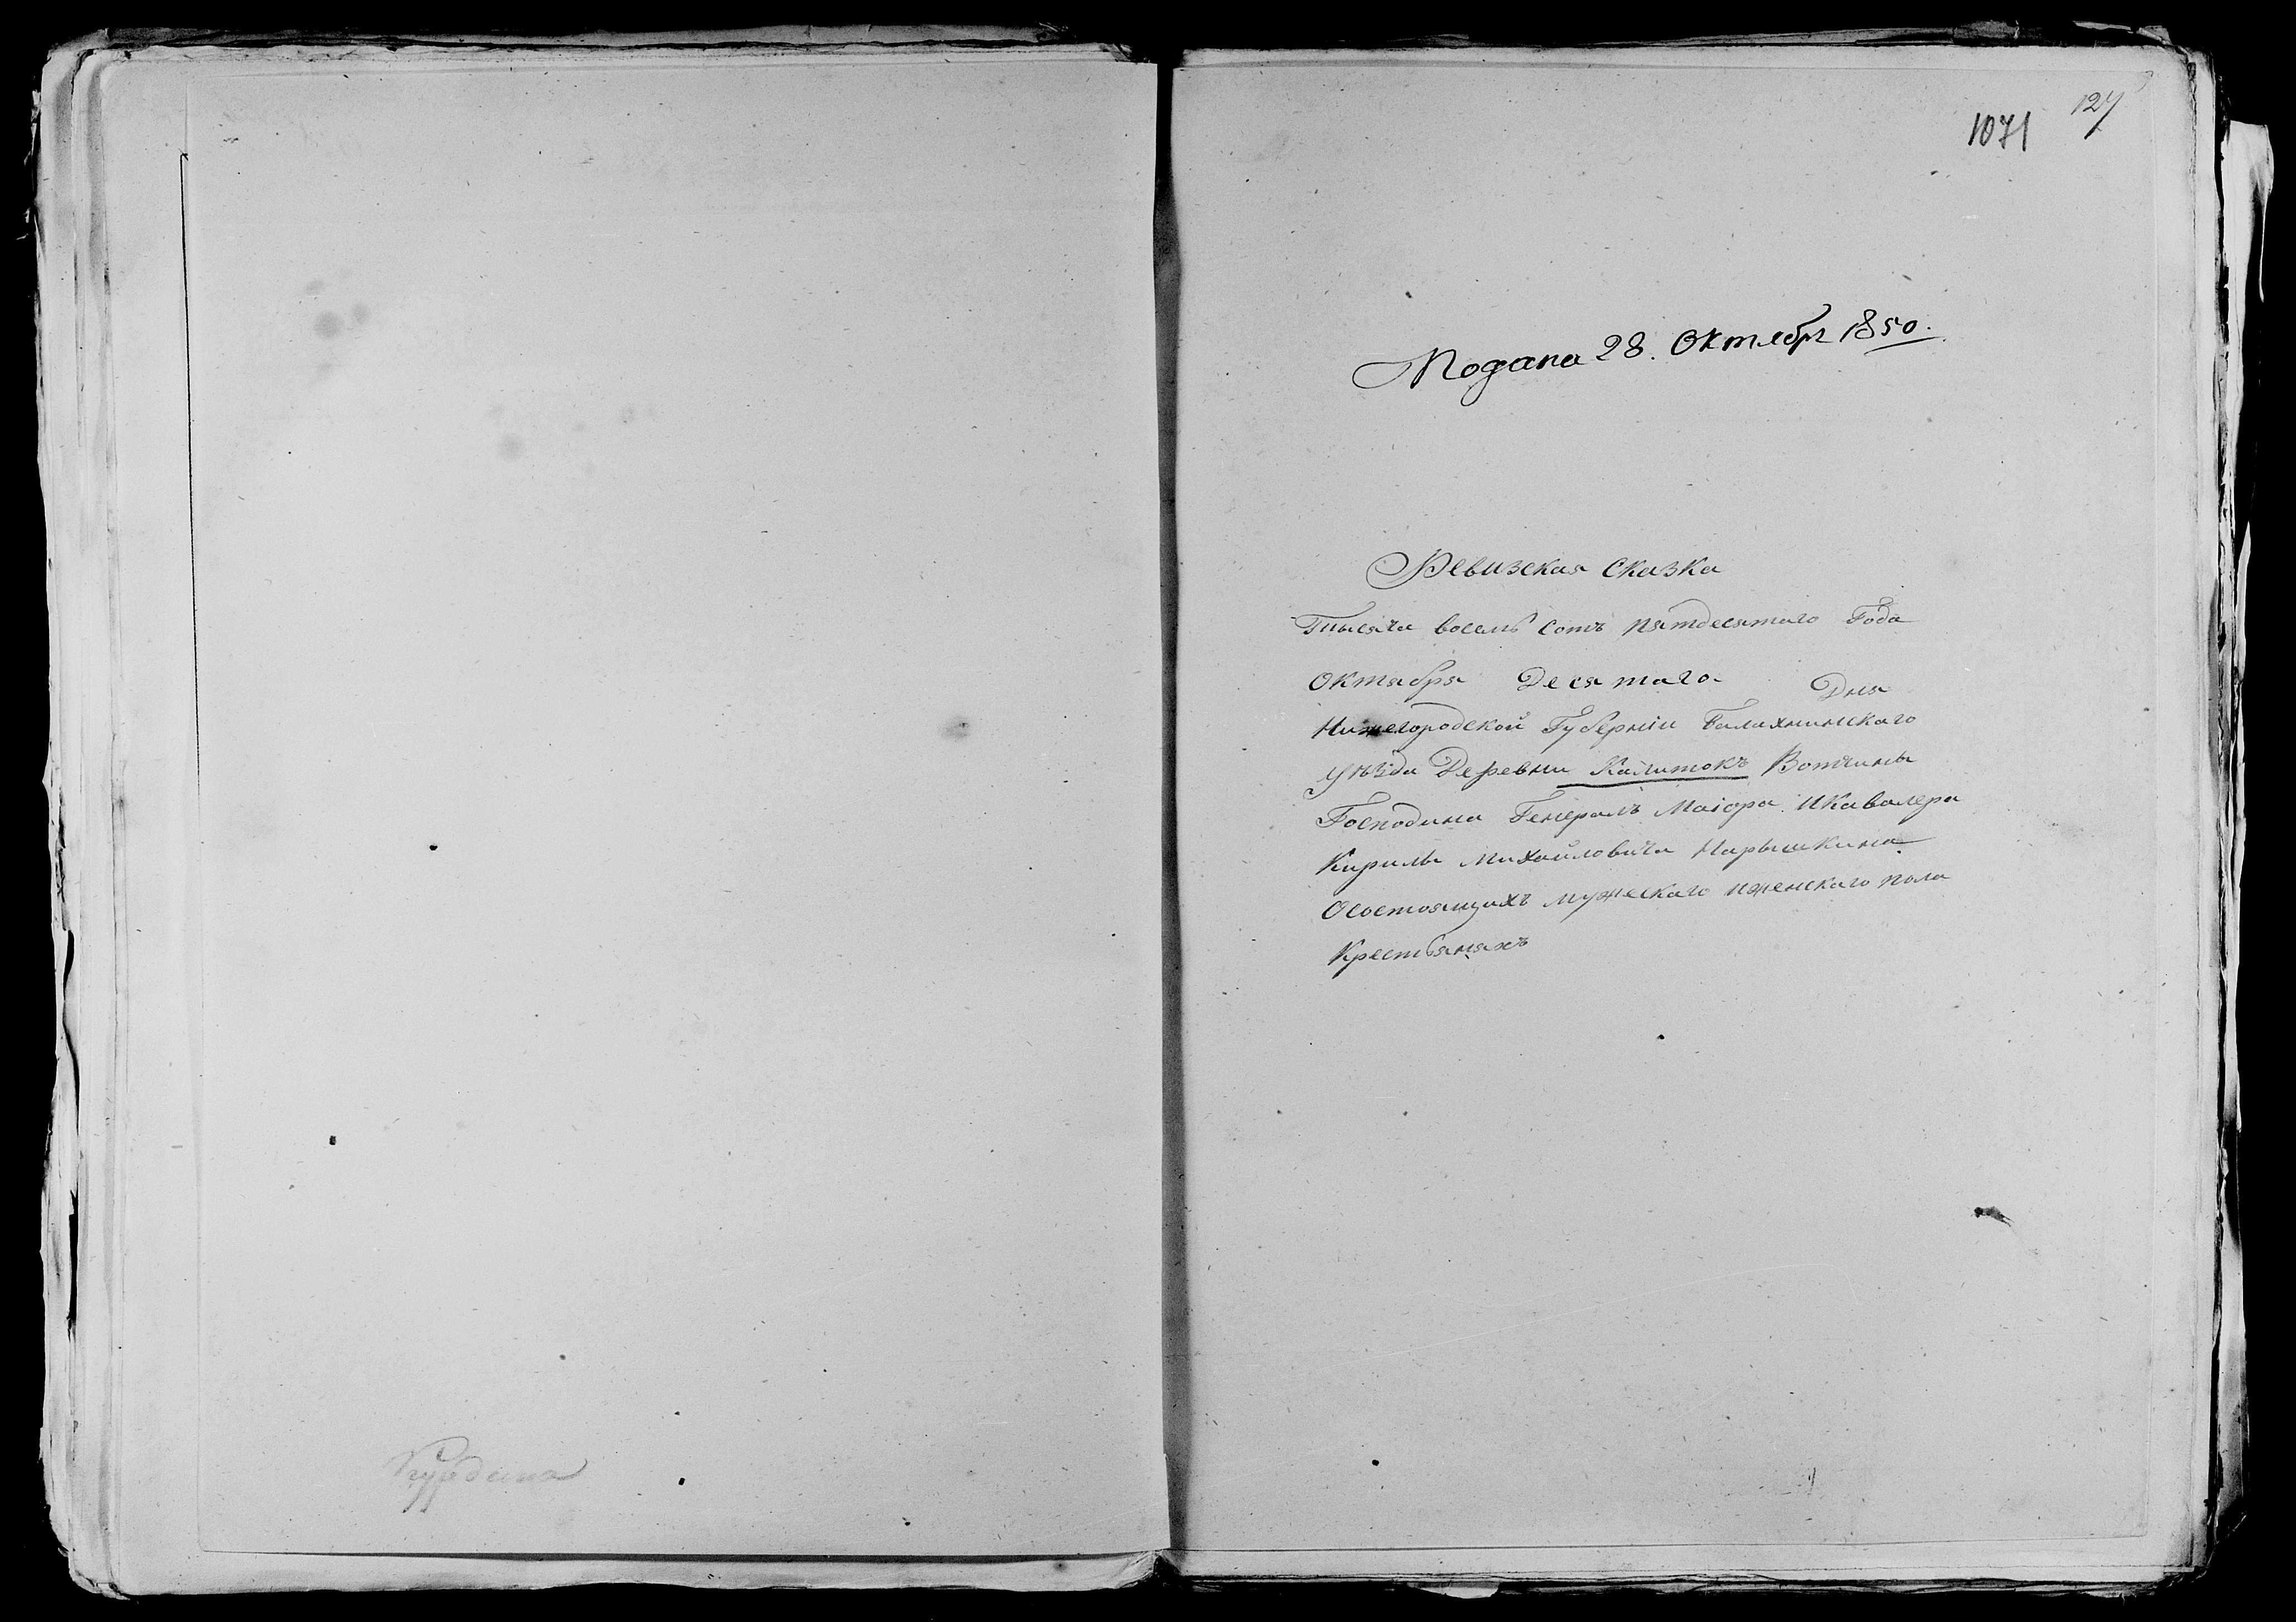 127
1071
Подана 28. Октября 1850.
Ревизская Сказка
Тысяча восемь сотъ пятдесятаго Года
Октября Десятаго Дня
Нижегородской Губерніи Балахнинскаго
уѣзда Деревни Калитокъ Вотчины
Господина Генералъ Маіора И Кавалера
Кирилы Михайловича Нарышкина
О состоящихъ мужескаго и женскаго пола
Крестьянахъ